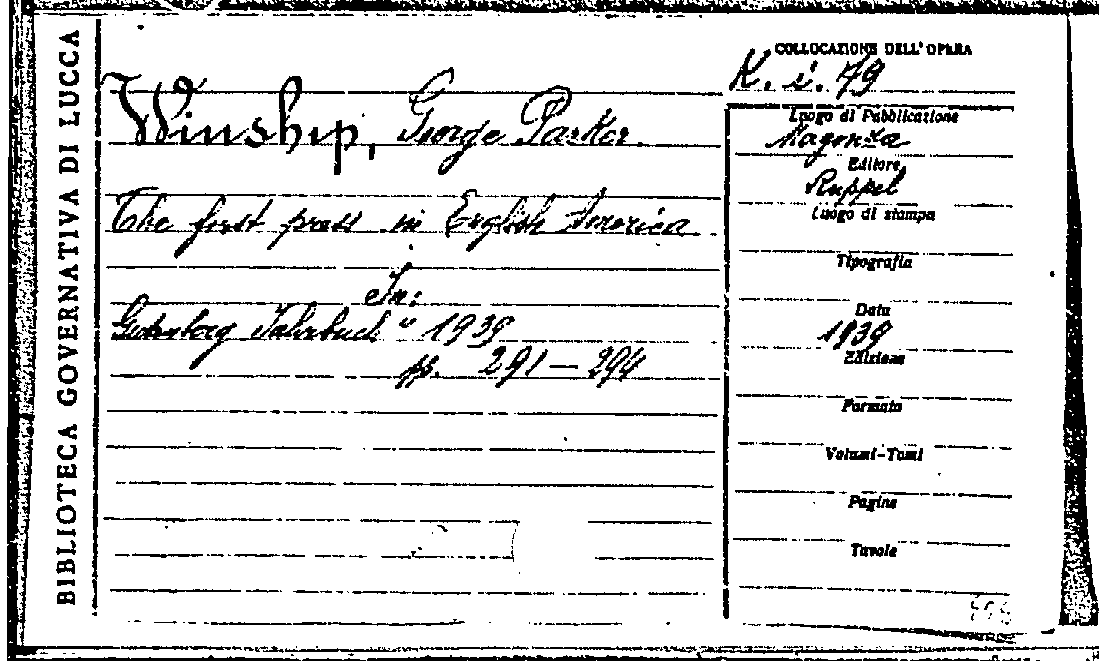 BIBLIOTECA GOVERNATIVA DI LUCCA
Winship, George Parker.
The first press in English America
In:
Gutenberg Jahrbuch " 1939
pp. 291 – 294
COLLOCAZIONE DELL' OPERA
K. i. 79
Luogo di Pubblicazione
Magonza
Editore
Ruppel
Luogo di stampa
Tipografia
Data
1939
Edizione
Formato
Volumi-Tomi
Pagine
Tavole